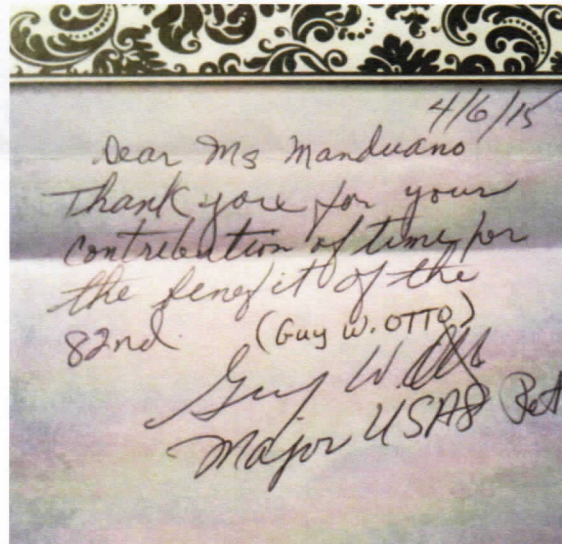 4/6/15
Dear Ms Manduano
Thank you for your
contribution of time for
the benefit of the
82nd. (Guy W. OTTO)
Guy W. Otto
Major USAF Ret